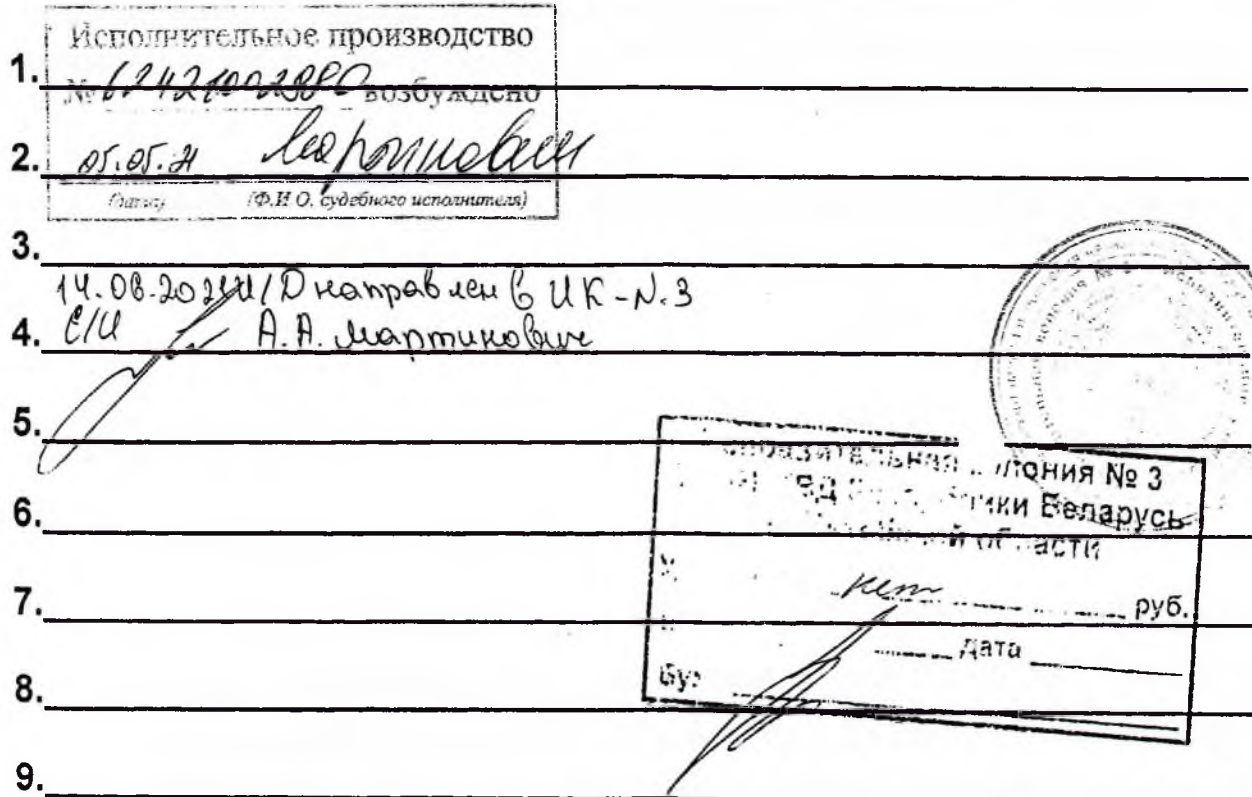 Исполнительное производство
1.
№ 62421002980 возбуждено
2. 05.05.21 Мартинович
(дата) (Ф.И.О. судебного исполнителя)
3.
14.06.2021 И/Д направлен в ИК-N.3
С/И А.А. Мартинович
4.
5.
колония № 3
Беларусь
6.
области
нет руб.
7.
дата
8.
9.